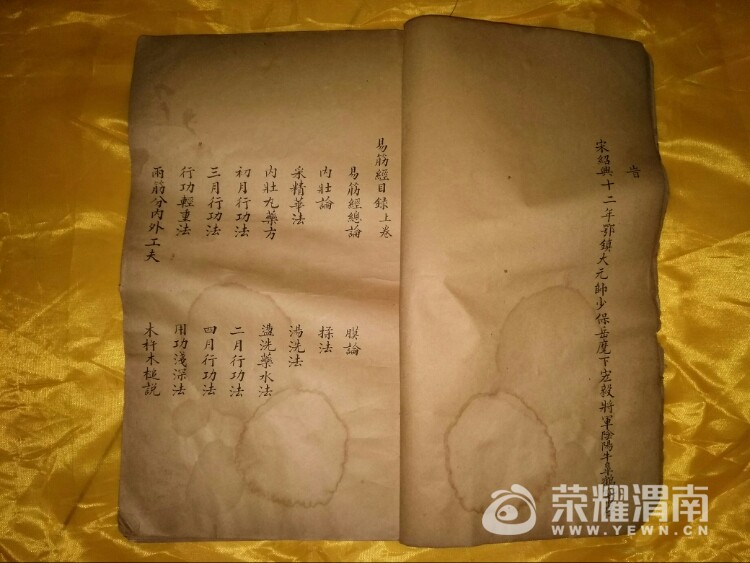 旹
宋紹興十二年鄂鎮大元帥少保岳麾下宏毅將軍陰陽牛皋鶴
易筋經目錄上卷
易筋經總論 膜論
內壯論 揉法
采精華法 湯洗法
內壯丸藥方 盪洗藥水法
初月行功法 二月行功法
三月行功法 四月行功法
行功輕重法 用功淺深法
兩筋分內外工夫 木杵木槌說
荣耀渭南
WWW.YEWN.CN